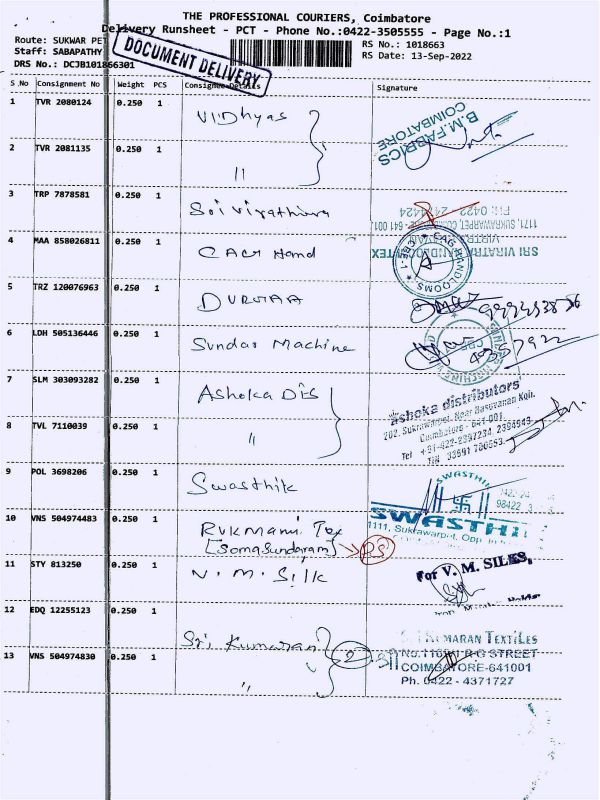 THE PROFESSIONAL COURIERS, Coimbatore
Delivery Runsheet - PCT - Phone No.:0422-3505555 - Page No.:1
Route: SUKWAR PET
RS No.: 1018663
Staff: SABAPATHY
RS Date: 13-Sep-2022
DRS No.: DCJB101866301
DOCUMENT DELIVERY
S.No Consignment No Weight PCS Consignee Details Signature
1 TVR 2080124 0.250 1 Vidhyas
B.M.FABRICS
COIMBATORE
2 TVR 2081135 0.250 1 "
3 TRP 7878581 0.250 1 Sri Virathiura
1171, SUKRAWARPET, COIMBATORE - 641 001.
4 MAA 858026811 0.250 1 CAG Hand
CAG HANDLOOMS
5 TRZ 120076963 0.250 1 DURGAA
6 LDH 505136446 0.250 1 Sundar Machine
7 SLM 303093282 0.250 1 Ashoka Dis
Ashoka distributors
202, Sukrawarpet, Near Basuvanan Koil,
Coimbatore - 641-001.
8 TVL 7110039 0.250 1 "
Tel +91-422-2397234, 2394943
9 POL 3698206 0.250 1 Swasthik
SWASTHIK
98422
SWASTHIK
1111, Sukrawarpet, Opp.
10 VNS 504974483 0.250 1 Rukmani Tex
[Somasundaram] → RS
11 STY 813250 0.250 1 V. M. Silk
For V. M. SILKS,
12 EDQ 12255123 0.250 1 Sri Kumaran
2
SRI KUMARAN TEXTILES
STREET
13 VNS 504974830 0.250 1 "
COIMBATORE-641001
Ph. 0422 - 4371727